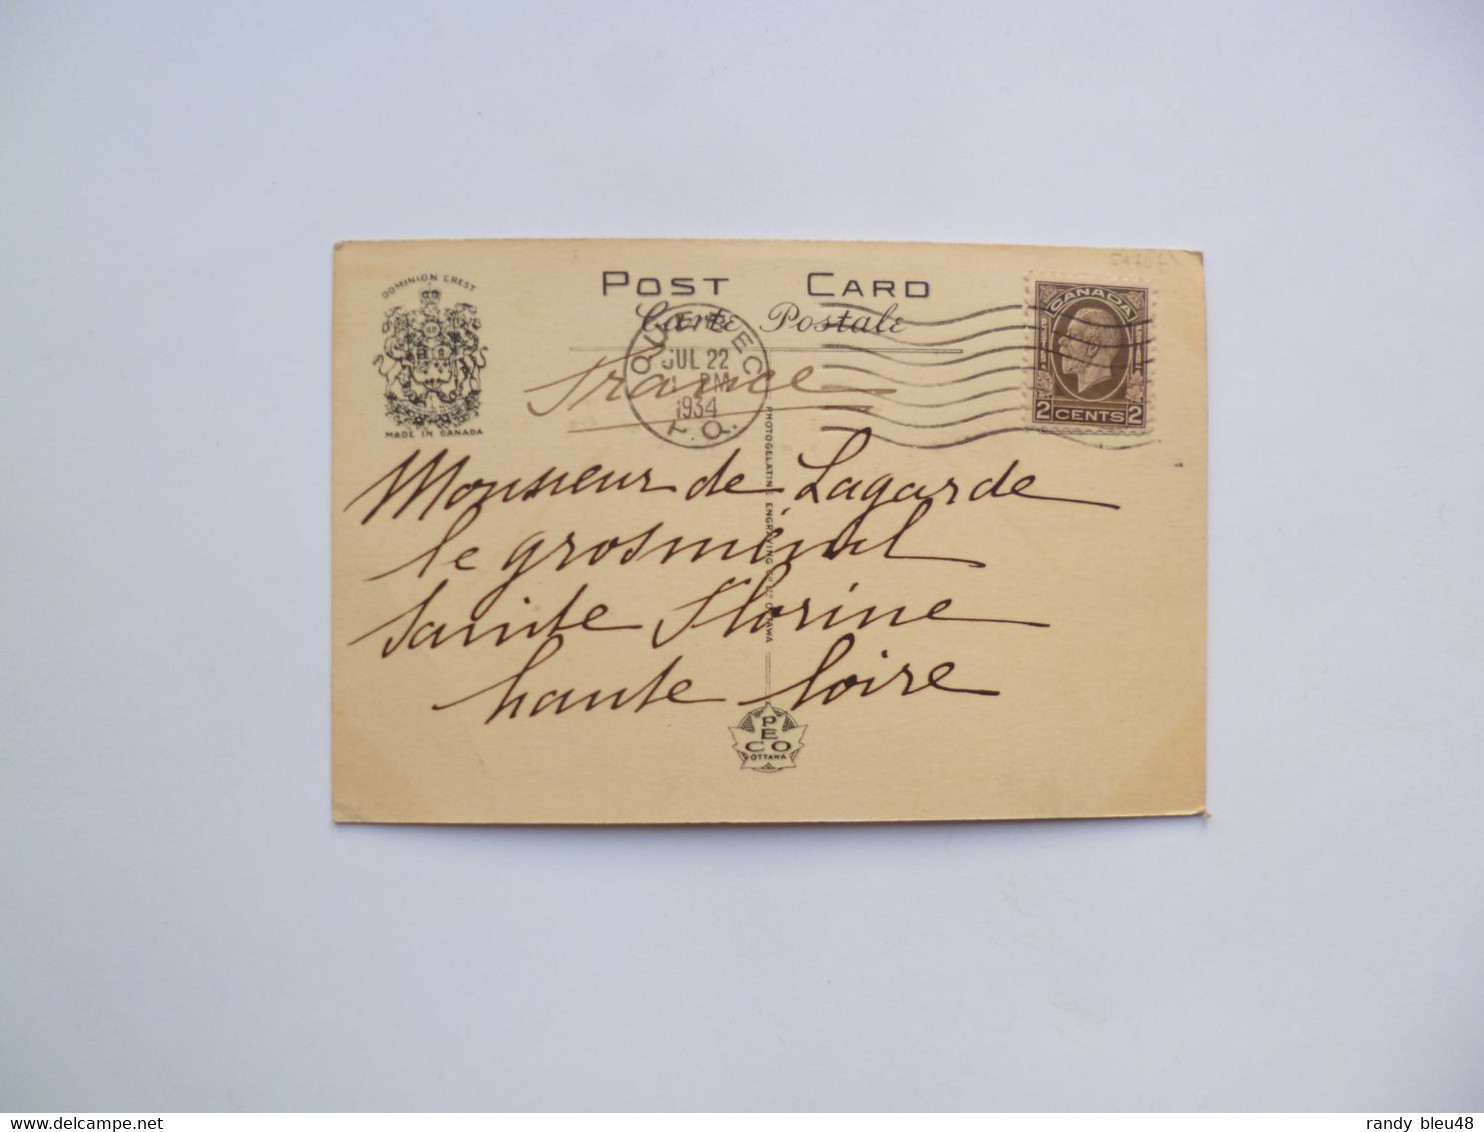 DOMINION CREST
MADE IN CANADA
POST CARD
Carte Postale
QUEBEC
JUL 22
PM
1934
P.Q.
CANADA
2 CENTS 2
France
Monsieur de Lagarde
le grosménil
Sainte Florine
haute loire
PHOTOGELATINE ENGRAVING Co. Ltd. OTTAWA
PECO
OTTAWA
randy_bleu48